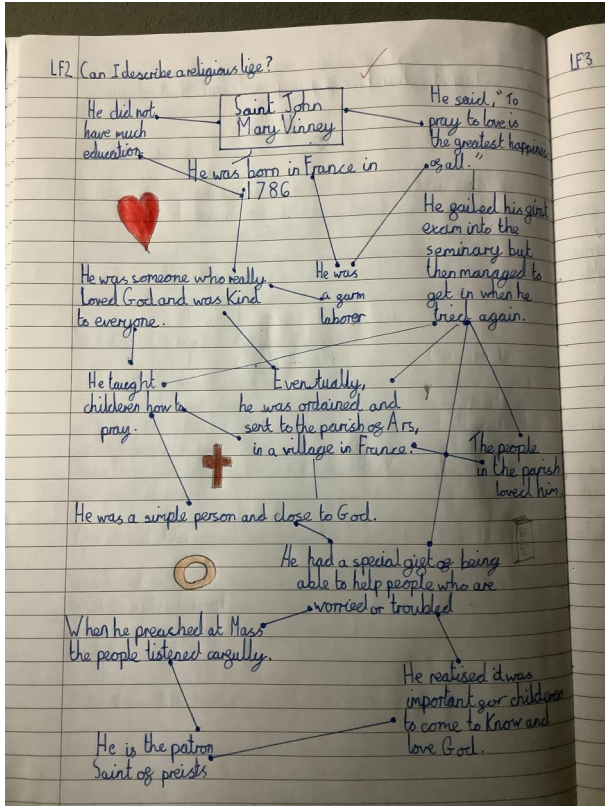 LF2 Can I describe a religious life?
LF3
Saint John
Mary Vinney
He did not
have much
education.
He said, "To
pray to love is
the greatest happines
of all."
He was born in France in
1786
He failed his first
exam into the
seminary but
then managed to
get in when he
tried again.
He was someone who really
loved God and was kind
to everyone.
He was
a farm
laborer
He taught
childeren how to
pray.
Eventually,
he was ordained and
sent to the parish of Ars,
in a village in France.
The people
in the parish
loved him.
He was a simple person and close to God.
He had a special gift of being
able to help people who are
worried or troubled
When he preached at Mass
the people listened carfully.
He realised it was
important for childeren
to come to know and
love God.
He is the patron
Saint of preists